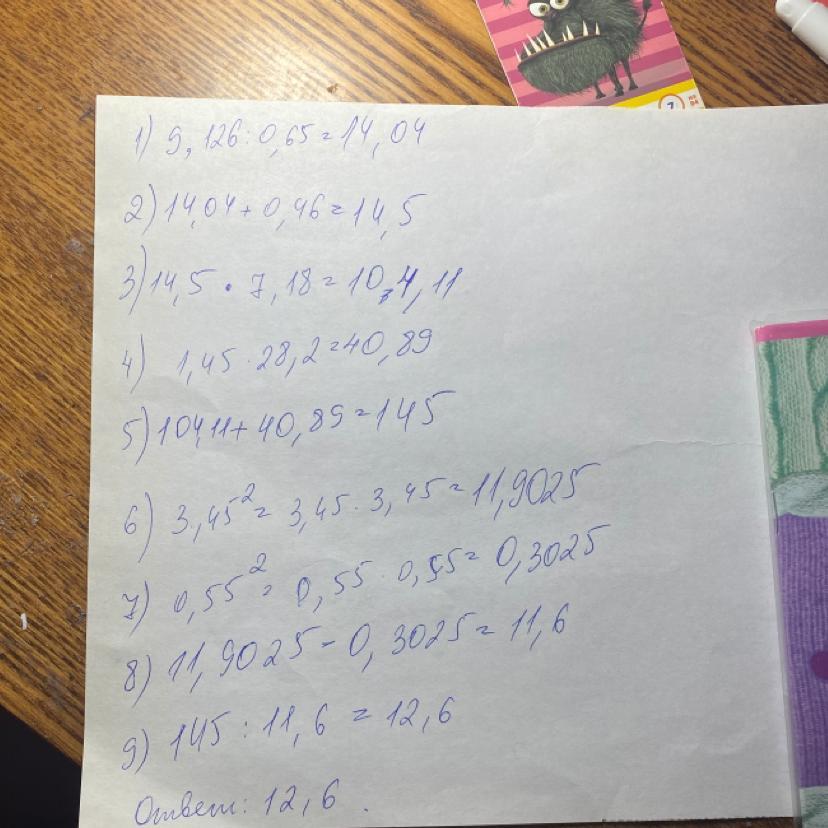 7
1) 9,126:0,65=14,04
2) 14,04+0,46=14,5
3) 14,5 · 7,18=104,11
4) 1,45 · 28,2=40,89
5) 104,11+40,89=145
6) 3,45²=3,45 · 3,45=11,9025
7) 0,55²=0,55 · 0,55=0,3025
8) 11,9025-0,3025=11,6
9) 145:11,6=12,6
Ответ: 12,6.